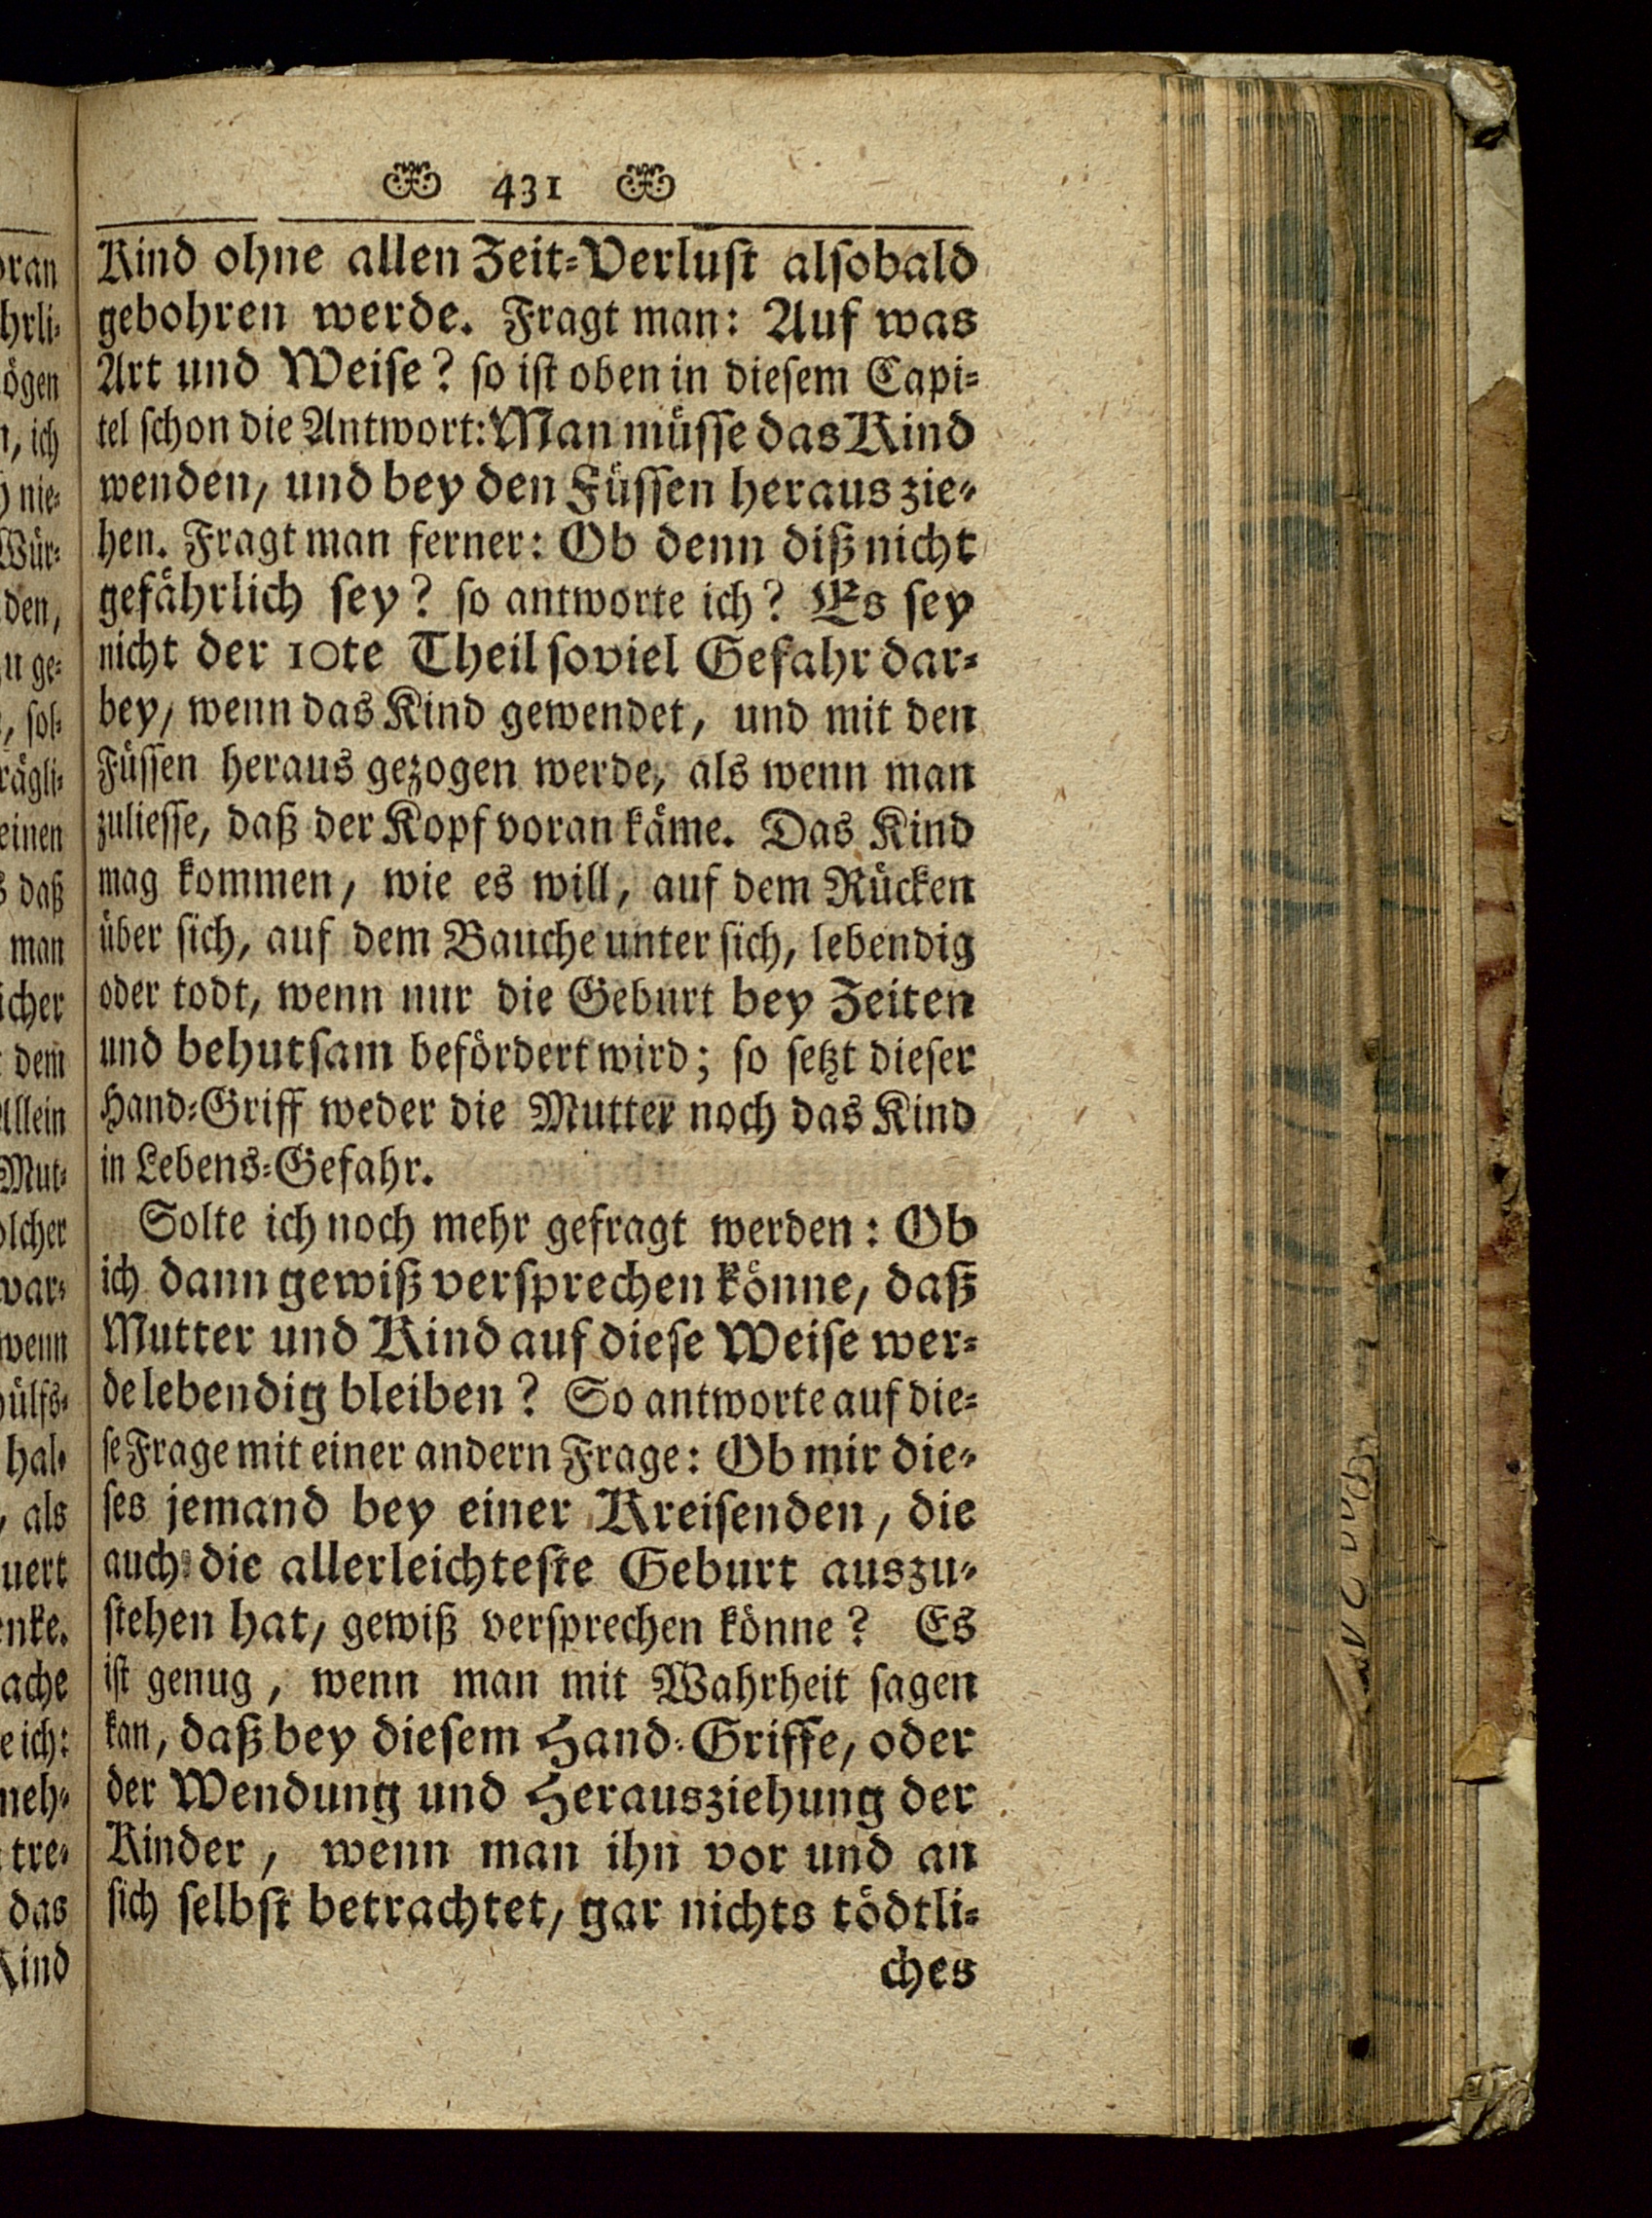 431
Kind ohne allen Zeit-Verlust alsobald
gebohren werde. Fragt man: Auf was
Art und Weise? so ist oben in diesem Capi-
tel schon die Antwort: Man müsse das Kind
wenden, und bey den Füssen heraus zie-
hen. Fragt man ferner: Ob denn diß nicht
gefährlich sey? so antworte ich? Es sey
nicht der 10te Theil soviel Gefahr dar-
bey, wenn das Kind gewendet, und mit den
Füssen heraus gezogen werde, als wenn man
zuliesse, daß der Kopf voran käme. Das Kind
mag kommen, wie es will, auf dem Rücken
über sich, auf dem Bauche unter sich, lebendig
oder todt, wenn nur die Geburt bey Zeiten
und behutsam befördert wird; so setzt dieser
Hand-Griff weder die Mutter noch das Kind
in Lebens-Gefahr.
Solte ich noch mehr gefragt werden: Ob
ich dann gewiß versprechen könne, daß
Mutter und Kind auf diese Weise wer-
de lebendig bleiben? So antworte auf die-
se Frage mit einer andern Frage: Ob mir die-
ses jemand bey einer Kreisenden, die
auch die allerleichteste Geburt auszu-
stehen hat, gewiß versprechen könne? Es
ist genug, wenn man mit Wahrheit sagen
kan, daß bey diesem Hand-Griffe, oder
der Wendung und Herausziehung der
Kinder, wenn man ihn vor und an
sich selbst betrachtet, gar nichts tödtli-
ches